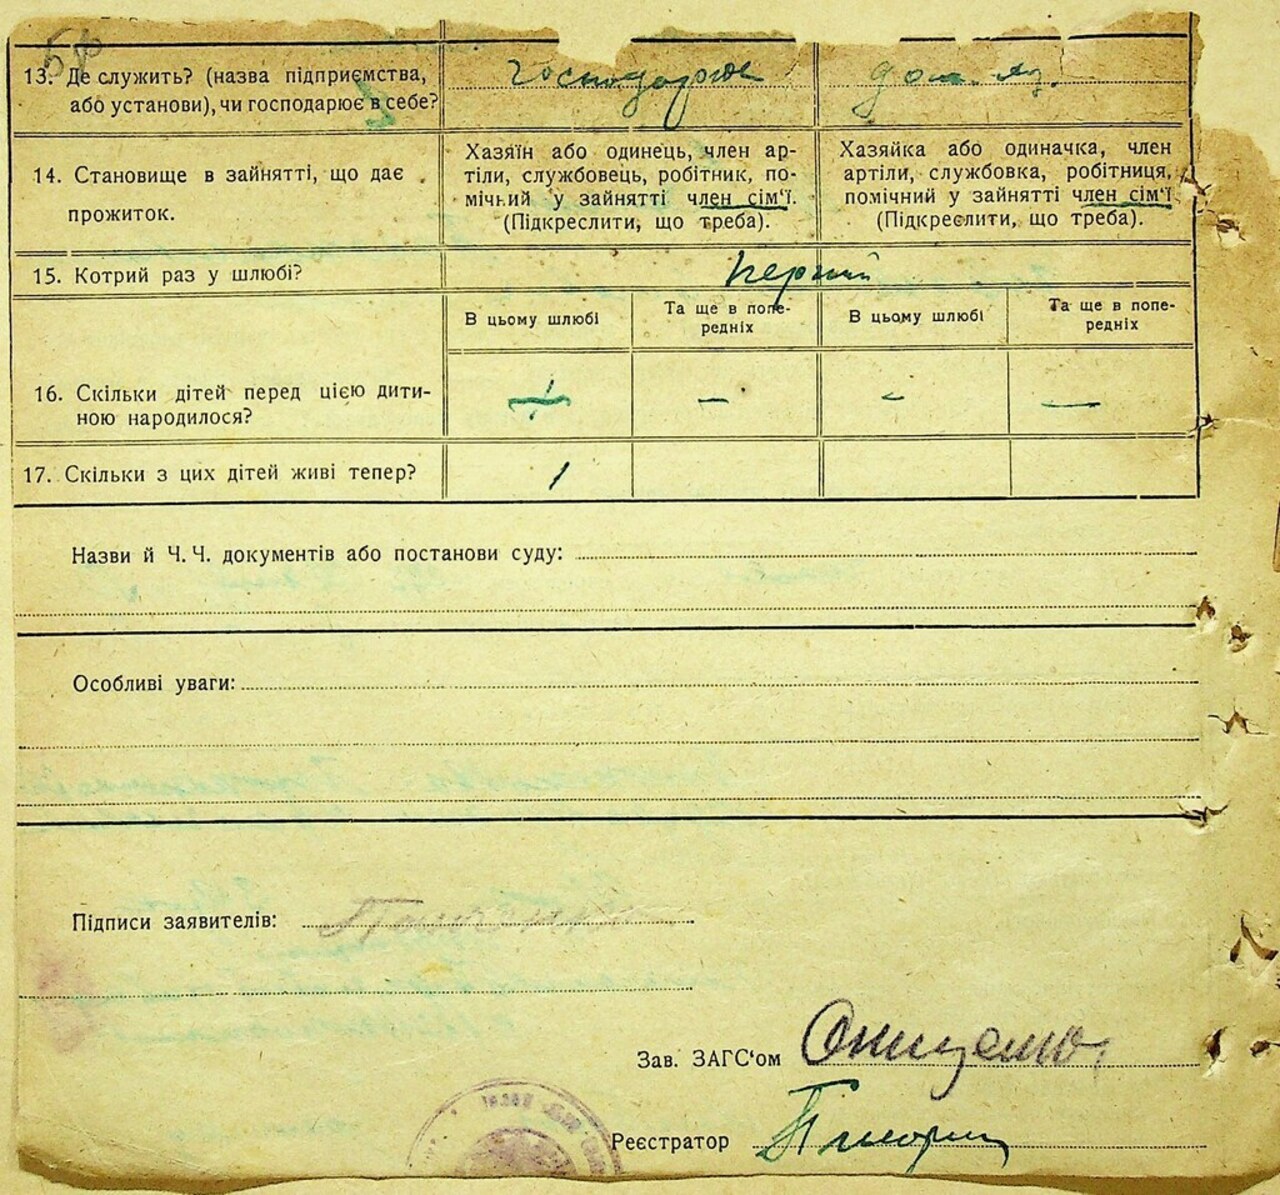 13. Де служить? (назва підприємства, господарює дом. гос.
або установи), чи господарює в себе?
14. Становище в зайнятті, що дає прожиток.
Хазяїн або одинець, член ар-
тіли, службовець, робітник, по-
мічний у зайнятті член сім'ї.
(Підкреслити, що треба).
Хазяйка або одиначка, член
артіли, службовка, робітниця,
помічний у зайнятті член сім'ї
(Підкреслити, що треба).
15. Котрий раз у шлюбі? перший
В цьому шлюбі
Та ще в попе-
редніх
В цьому шлюбі
Та ще в попе-
редніх
16. Скільки дітей перед цією дити- — — —
ною народилося?
17. Скільки з цих дітей живі тепер? 1
Назви й Ч. Ч. документів або постанови суду:
Особливі уваги:
Підписи заявителів:
Зав. ЗАГС'ом Онищенко
Реєстратор